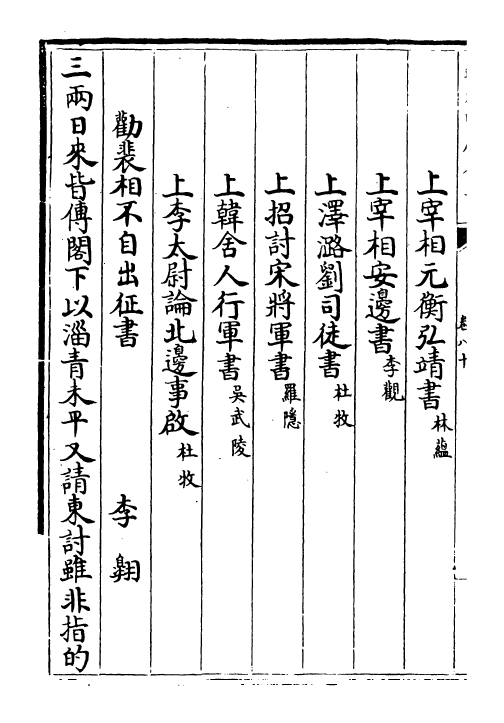 卷八十
上宰相元衡弘靖書 林蘊
上宰相安邊書 李觀
上澤潞劉司徒書 杜牧
上招討宋將軍書 羅隱
上韓舍人行軍書 吳武陵
上李太尉論北邊事啟 杜牧
勸裴相不自出征書 李翱
三兩日來皆傳閣下以淄青未平又請東討雖非指的